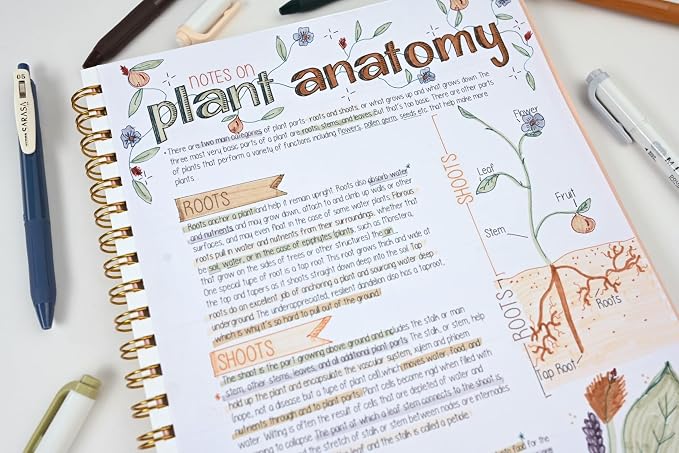 NOTES ON
plant anatomy
• There are two main categories of plant parts - roots and shoots, or what grows up and what grows down. The
three most very basic parts of a plant are roots, stems, and leaves. But that's too basic. There are other parts
of plants that perform a variety of functions including flowers, pollen, germ, seeds, etc. that help make more
plants.
ROOTS
Roots anchor a plant and help it remain upright. Roots also absorb water
and nutrients and may grow down, attach to and climb up walls or other
surfaces, and may even float in the case of some water plants. Fibrous
roots pull in water and nutrients from their surroundings, whether that
be soil, water, or in the case of epiphytes (plants, such as monstera,
that grow on the sides of trees or other structures) the air.
One special type of root is a tap root. This root grows thick and wide at
the top and tapers as it shoots straight down deep into the soil. Tap
roots do an excellent job of anchoring a plant and sourcing water deep
underground. The underappreciated, resilient dandelion also has a taproot,
which is why it's so hard to pull out of the ground.
SHOOTS
The shoot is the part growing above ground and includes the stalk or main
stem, other stems, leaves, and all additional plant parts. The stalk, or stem, help
hold up the plant and encapsulate the vascular system, xylem and phloem
(nope, not a disease but a type of plant cell) which moves water, food, and
nutrients through and to plant parts. Plant cells become rigid when filled with
water. Wilting is often the result of cells that are depleted of water and
to collapse. The point at which a leaf stem connects to the shoot is
and the stretch of stalk or stem between nodes are internodes
leaf and the stalk is called a petiole
food for the
SHOOTS
ROOTS
Flower
Leaf
Fruit
Stem
Roots
Tap Root
0.5
SARASA